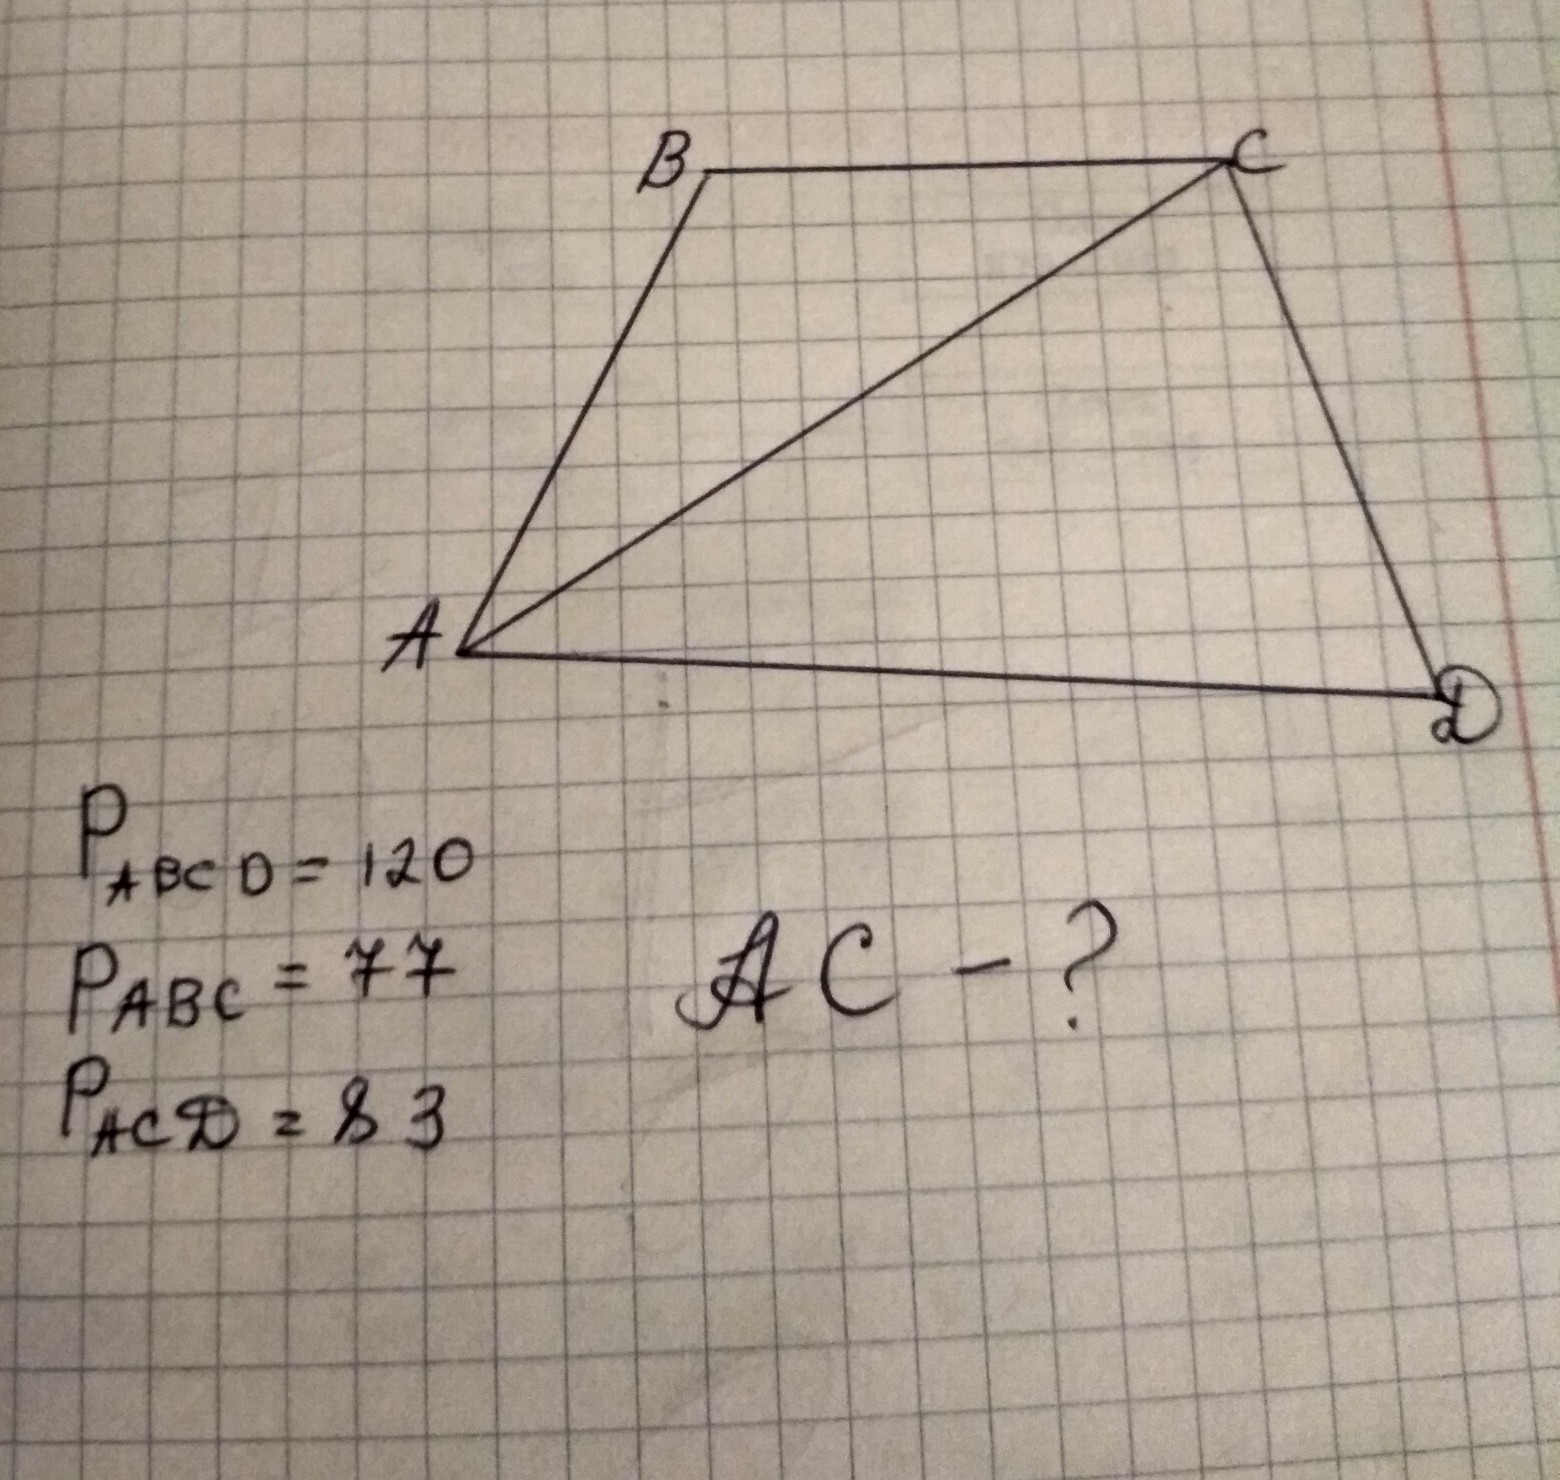 B C
A
D
P ABCD = 120
P ABC = 77
AC - ?
P ACD = 83